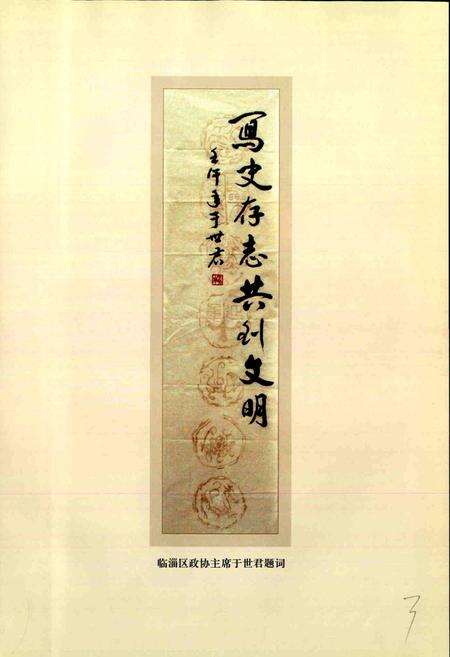 寫史存志共创文明
壬午年于世君
临淄区政协主席于世君题词